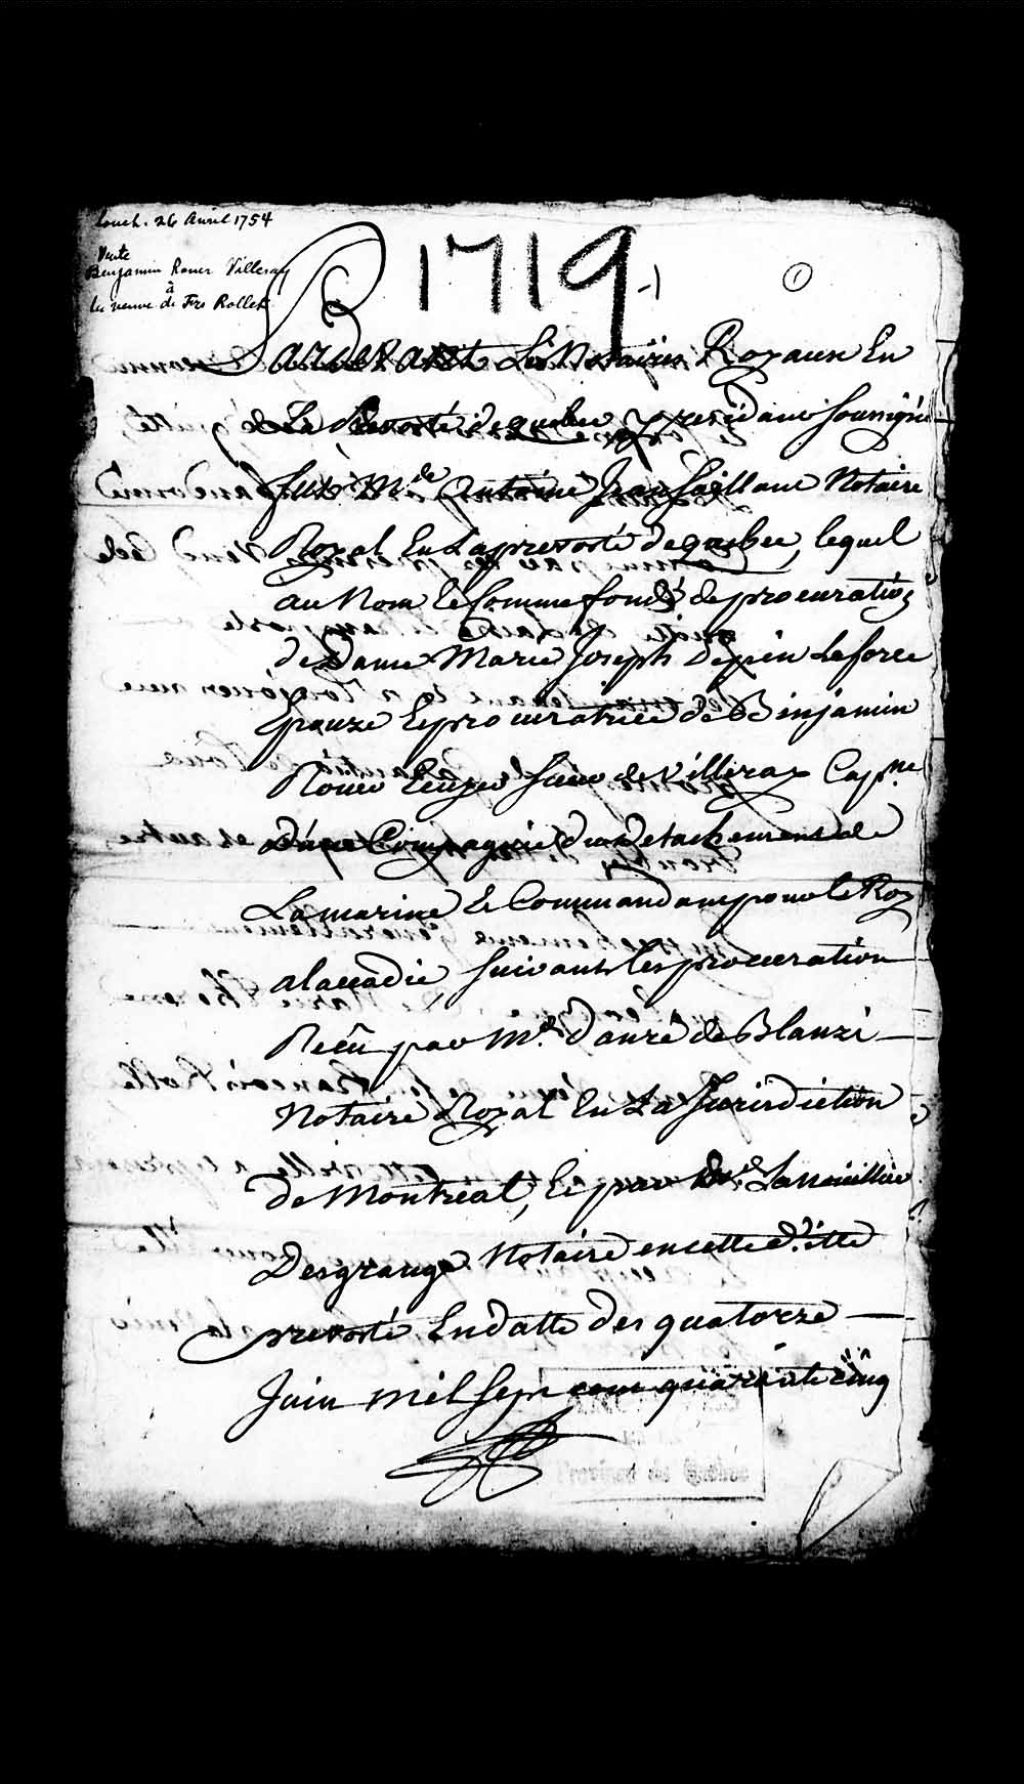 Louet. 26 Avril 1754
Vente
Benjamin Rouer Villeray
à
la veuve de Frs Rollet
1719
-1
1
Pardevant Les Notaires Royaux En
La prevosté de quebec y residans soussignés
fut Mtre Antoine Jean Saillant Notaire
Royal En La prevosté de quebec, lequel
au Nom & Comme fondé de procuration
de Dame Marie Joseph Depéin Laforce
Epouze & procuratrice de Binjamin
Rouer Ecuyer Sieur de Villeray Capne
D'une Compagnie d'un detachement de
La marine & Commandant pour le Roy
alaccadie suivant les procuration
Reçû par Me. danré de Blanzi
Notaire Royal En La Jurisdiction
de Montréal, & par Me. Lanoüillier
Desgrange Notaire en cette d.itte
prevosté En datte des quatorze
Juin mil sept cent quarante cinq
Province de Québec